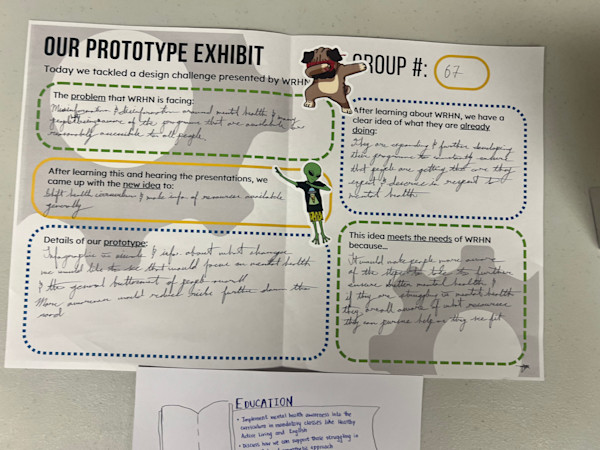 OUR PROTOTYPE EXHIBIT
GROUP #: 67
Today we tackled a design challenge presented by WRHN
The problem that WRHN is facing:
Misinformation & disinformation around mental health & many
people being aware of the programs that are available &
reasonably accessible to all people.
After learning this and hearing the presentations, we
came up with the new idea to:
Shift health & make info. of resources available
generally
Details of our prototype:
Infographic to & info. about what changes
we would like to see that would focus on mental health
& the general betterment of people overall
More awareness would reduce further down the
road
After learning about WRHN, we have a
clear idea of what they are already
doing:
They are expanding & further developing
their programs to constantly ensure
that people are getting that care they
expect & deserve in respect to
mental health.
This idea meets the needs of WRHN
because...
It would make people more aware
of the steps to take to further
ensure better mental health &
if they are struggling w mental health
they are all aware of what resources
they can pursue help as they see fit
EDUCATION
• Implement mental health awareness into the
curriculum in mandatory classes like Healthy
Active Living and English
• Discuss how we can support those struggling in
approach